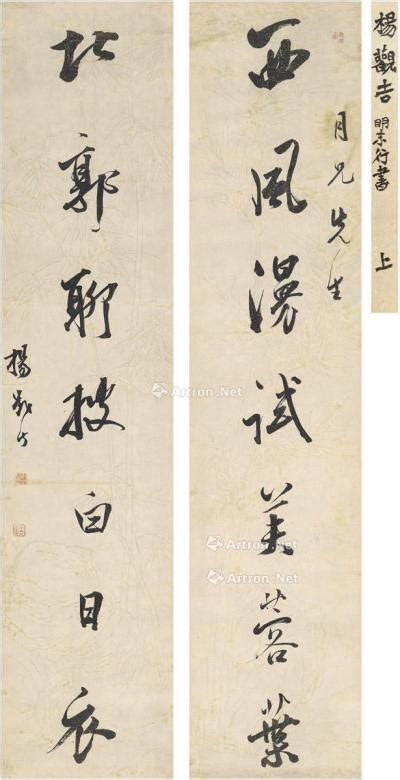 楊觀吉 明末行書 上
月兄先生
西風漫試芙蓉葉
北郭聊披白日衣
楊觀吉
Artron.Net
Artron.Net
Artron.Net